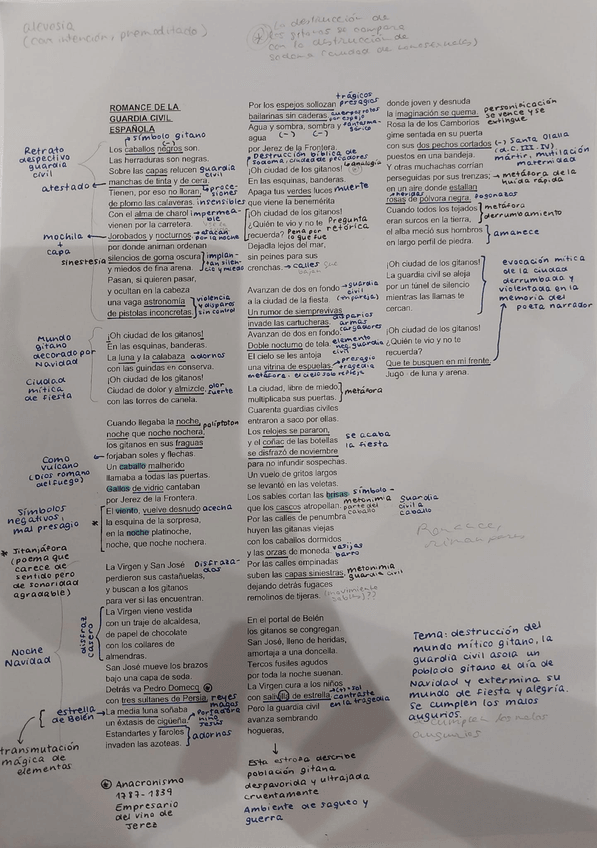 alevosia
(con intención, premeditado)
* La destrucción de
los gitanos se compara
con la destrucción de
Sodoma (ciudad de homosexuales)
ROMANCE DE LA
GUARDIA CIVIL
ESPAÑOLA
→ símbolo gitano
(-)
Los caballos negros son.
Las herraduras son negras.
Sobre las capas relucen guardia civil
manchas de tinta y de cera.
Tienen, por eso no lloran, agresiones
de plomo las calaveras. insensibles
Con el alma de charol impermeable
vienen por la carretera.
Jorobados y nocturnos, → atacan por la noche
por donde animan ordenan
silencios de goma oscura implantan silencio y miedo
y miedos de fina arena.
Pasan, si quieren pasar,
y ocultan en la cabeza
una vaga astronomía
de pistolas inconcretas.
violencia y disparos sin control
Retrato
despectivo
guardia
civil
atestado
mochila
+
capa
sinestesia
¡Oh ciudad de los gitanos!
En las esquinas, banderas.
La luna y la calabaza adornos
con las guindas en conserva.
¡Oh ciudad de los gitanos!
Ciudad de dolor y almizcle, olor fuerte
con las torres de canela.
Mundo
gitano
decorado por
Navidad
Ciudad
mítica
de fiesta
Cuando llegaba la noche, políptoton
noche que noche nochera,
los gitanos en sus fraguas
forjaban soles y flechas.
Un caballo malherido
llamaba a todas las puertas.
Gallos de vidrio cantaban
por Jerez de la Frontera.
El viento, vuelve desnudo acecha
la esquina de la sorpresa,
en la noche platinoche,
noche, que noche nochera.
Como
vulcano
(Dios romano
del fuego)
Símbolos
negativos,
mal presagio
* Jitanjáfora
(poema que
carece de
sentido pero
de sonoridad
agradable)
La Virgen y San José Disfrazados
perdieron sus castañuelas,
y buscan a los gitanos
para ver si las encuentran.
La Virgen viene vestida
con un traje de alcaldesa,
de papel de chocolate
con los collares de
almendras.
San José mueve los brazos
bajo una capa de seda.
Detrás va Pedro Domecq *
con tres sultanes de Persia. reyes magos
La media luna soñaba portadora niño Jesús
un éxtasis de cigüeña.
Estandartes y faroles
invaden las azoteas.
adornos
disfraz
casero
Noche
Navidad
estrella
de Belén
transmutación
mágica de
elementos
* Anacronismo
1787-1839
Empresario
del vino de
Jerez
Por los espejos sollozan trágicos presagios
bailarinas sin caderas.
Agua y sombra, sombra y
(-) (-)
agua
por Jerez de la Frontera.
Destrucción bíblica de
Sodoma, ciudad de pecadores
¡Oh ciudad de los gitanos! analogía
En las esquinas, banderas.
Apaga tus verdes luces muerte
que viene la benemérita
¡Oh ciudad de los gitanos!
¿Quién te vio y no te Pregunta retórica
recuerda? Pena por lo que fue
Dejadla lejos del mar,
sin peines para sus
crenchas. → calles
Avanzan de dos en fondo → guardia civil
a la ciudad de la fiesta (en pareja)
Un rumor de siemprevivas
invade las cartucheras. disparos armas cargadores
Avanzan de dos en fondo.
Doble nocturno de tela
El cielo se les antoja
una vitrina de espuelas. → presagio tragedia
La ciudad, libre de miedo,
multiplicaba sus puertas.
metáfora
Cuarenta guardias civiles
entraron a saco por ellas.
Los relojes se pararon,
y el coñac de las botellas
se disfrazó de noviembre
para no infundir sospechas.
se acaba
la fiesta
Un vuelo de gritos largos
se levantó en las veletas.
Los sables cortan las brisas símbolo-
que los cascos atropellan. metonimia parte del caballo
guardia
civil a
caballo
Por las calles de penumbra
huyen las gitanas viejas
con los caballos dormidos
y las orzas de moneda. vasijas barro
Por las calles empinadas
suben las capas siniestras, metonimia guardia civil
dejando detrás fugaces
remolinos de tijeras.
En el portal de Belén
los gitanos se congregan.
San José, lleno de heridas,
amortaja a una doncella.
Tercos fusiles agudos
por toda la noche suenan.
La Virgen cura a los niños
con salivilla de estrella.
contraste
en la tragedia
Pero la guardia civil
avanza sembrando
hogueras,
↓
Esta estrofa describe
población gitana
despavorida y ultrajada
cruentamente
Ambiente de saqueo y
guerra
donde joven y desnuda
la imaginación se quema. personificación
se vence y se extingue
Rosa la de los Camborios
gime sentada en su puerta
con sus dos pechos cortados (-) Santa Olalla
puestos en una bandeja.
mártir, mutilación
maternidad
Y otras muchachas corrían
perseguidas por sus trenzas, → metáfora de la huida rápida
en un aire donde estallan
rosas de pólvora negra. fogonazos
Cuando todos los tejados
eran surcos en la tierra,
metáfora
derrumbamiento
el alba meció sus hombros
en largo perfil de piedra.
amanece
¡Oh ciudad de los gitanos!
La guardia civil se aleja
por un túnel de silencio
mientras las llamas te
cercan.
evocación mítica
de la ciudad
derrumbada y
violentada en la
memoria del
poeta narrador
¡Oh ciudad de los gitanos!
¿Quién te vio y no te
recuerda?
Que te busquen en mi frente.
Jugo de luna y arena.
Tema: destrucción del
mundo mítico gitano, la
guardia civil asola un
poblado gitano el día de
Navidad y extermina su
mundo de fiesta y alegría.
Se cumplen los malos
augurios.